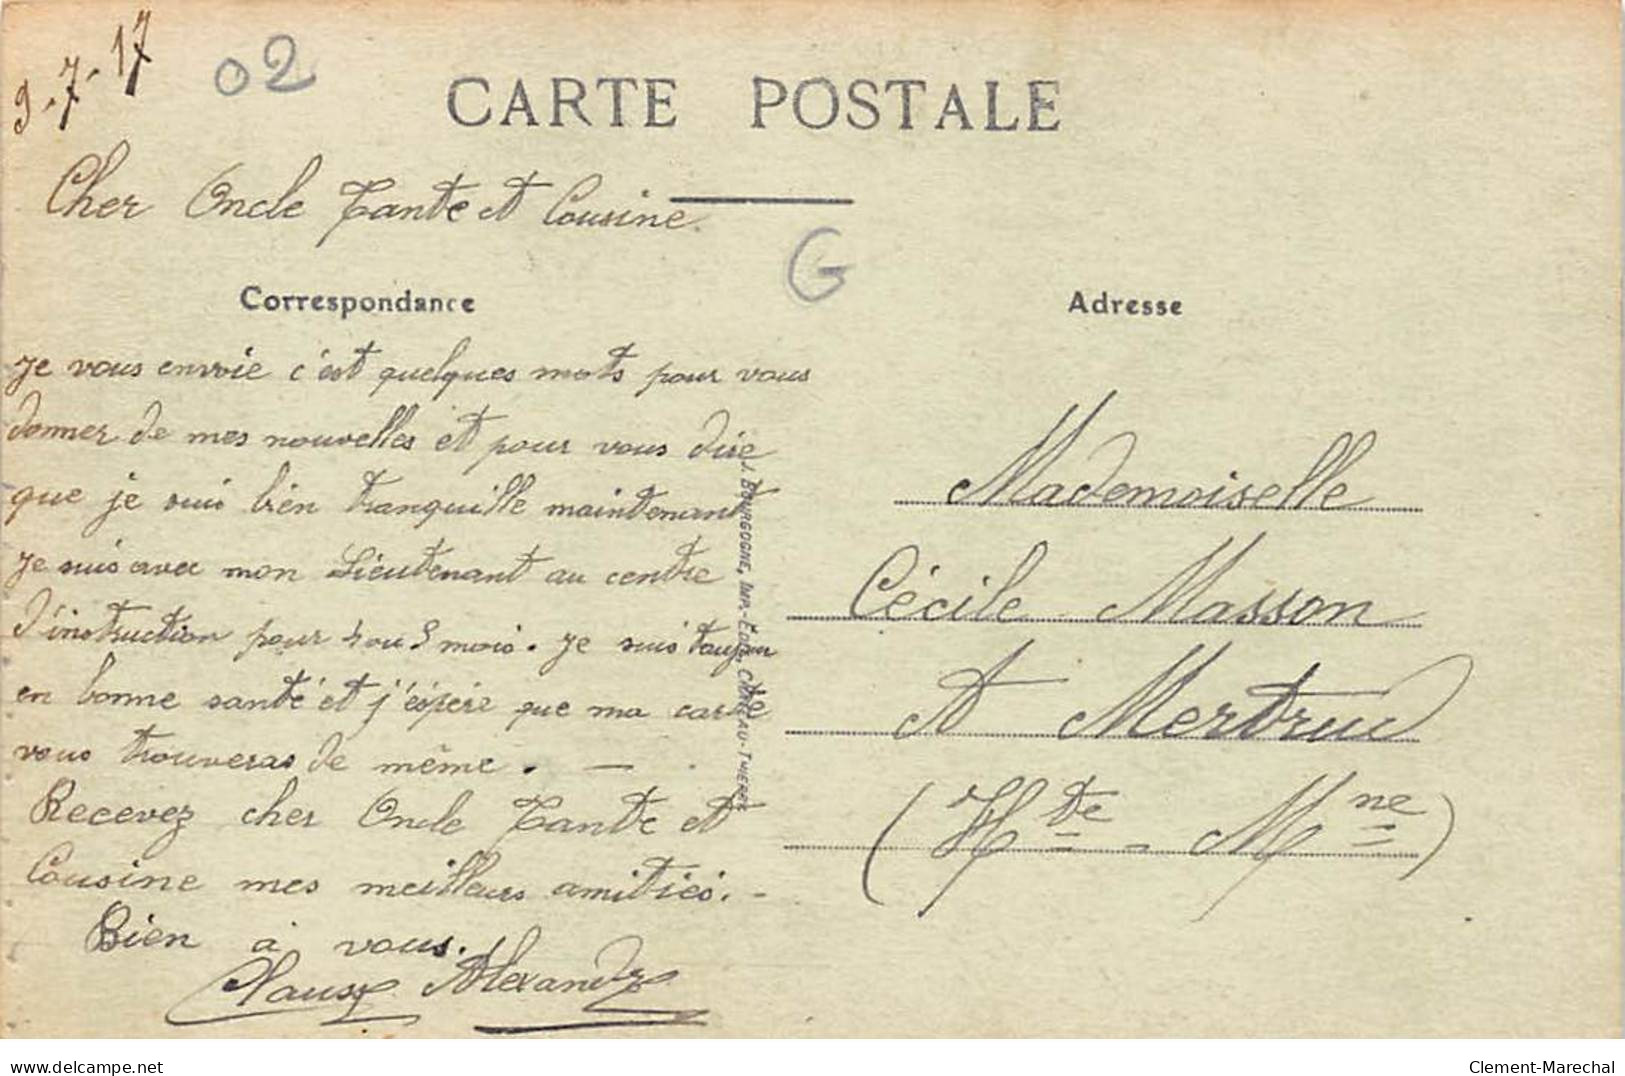 9-7-17
02
CARTE POSTALE
Cher Oncle Tante et Cousine.
G
Correspondance
Je vous envoie c'est quelques mots pour vous
donner de mes nouvelles et pour vous dire
que je suis bien tranquille maintenant
Je suis avec mon Lieutenant au centre
d'instruction pour ou 3 mois. Je suis
en bonne santé et j'éspère que ma carte
vous trouveras de même. —
Recevez cher Oncle Tante et
Cousine mes meilleurs amitiés. -
Bien à vous.
Alexandre
J. BOURGOGNE, IMP.-EDIT. CHATEAU-THIERRY
Adresse
Mademoiselle
Cécile Masson
A Mertrud
(Hte - Mne)
delcampe.net
Clement-Marechal